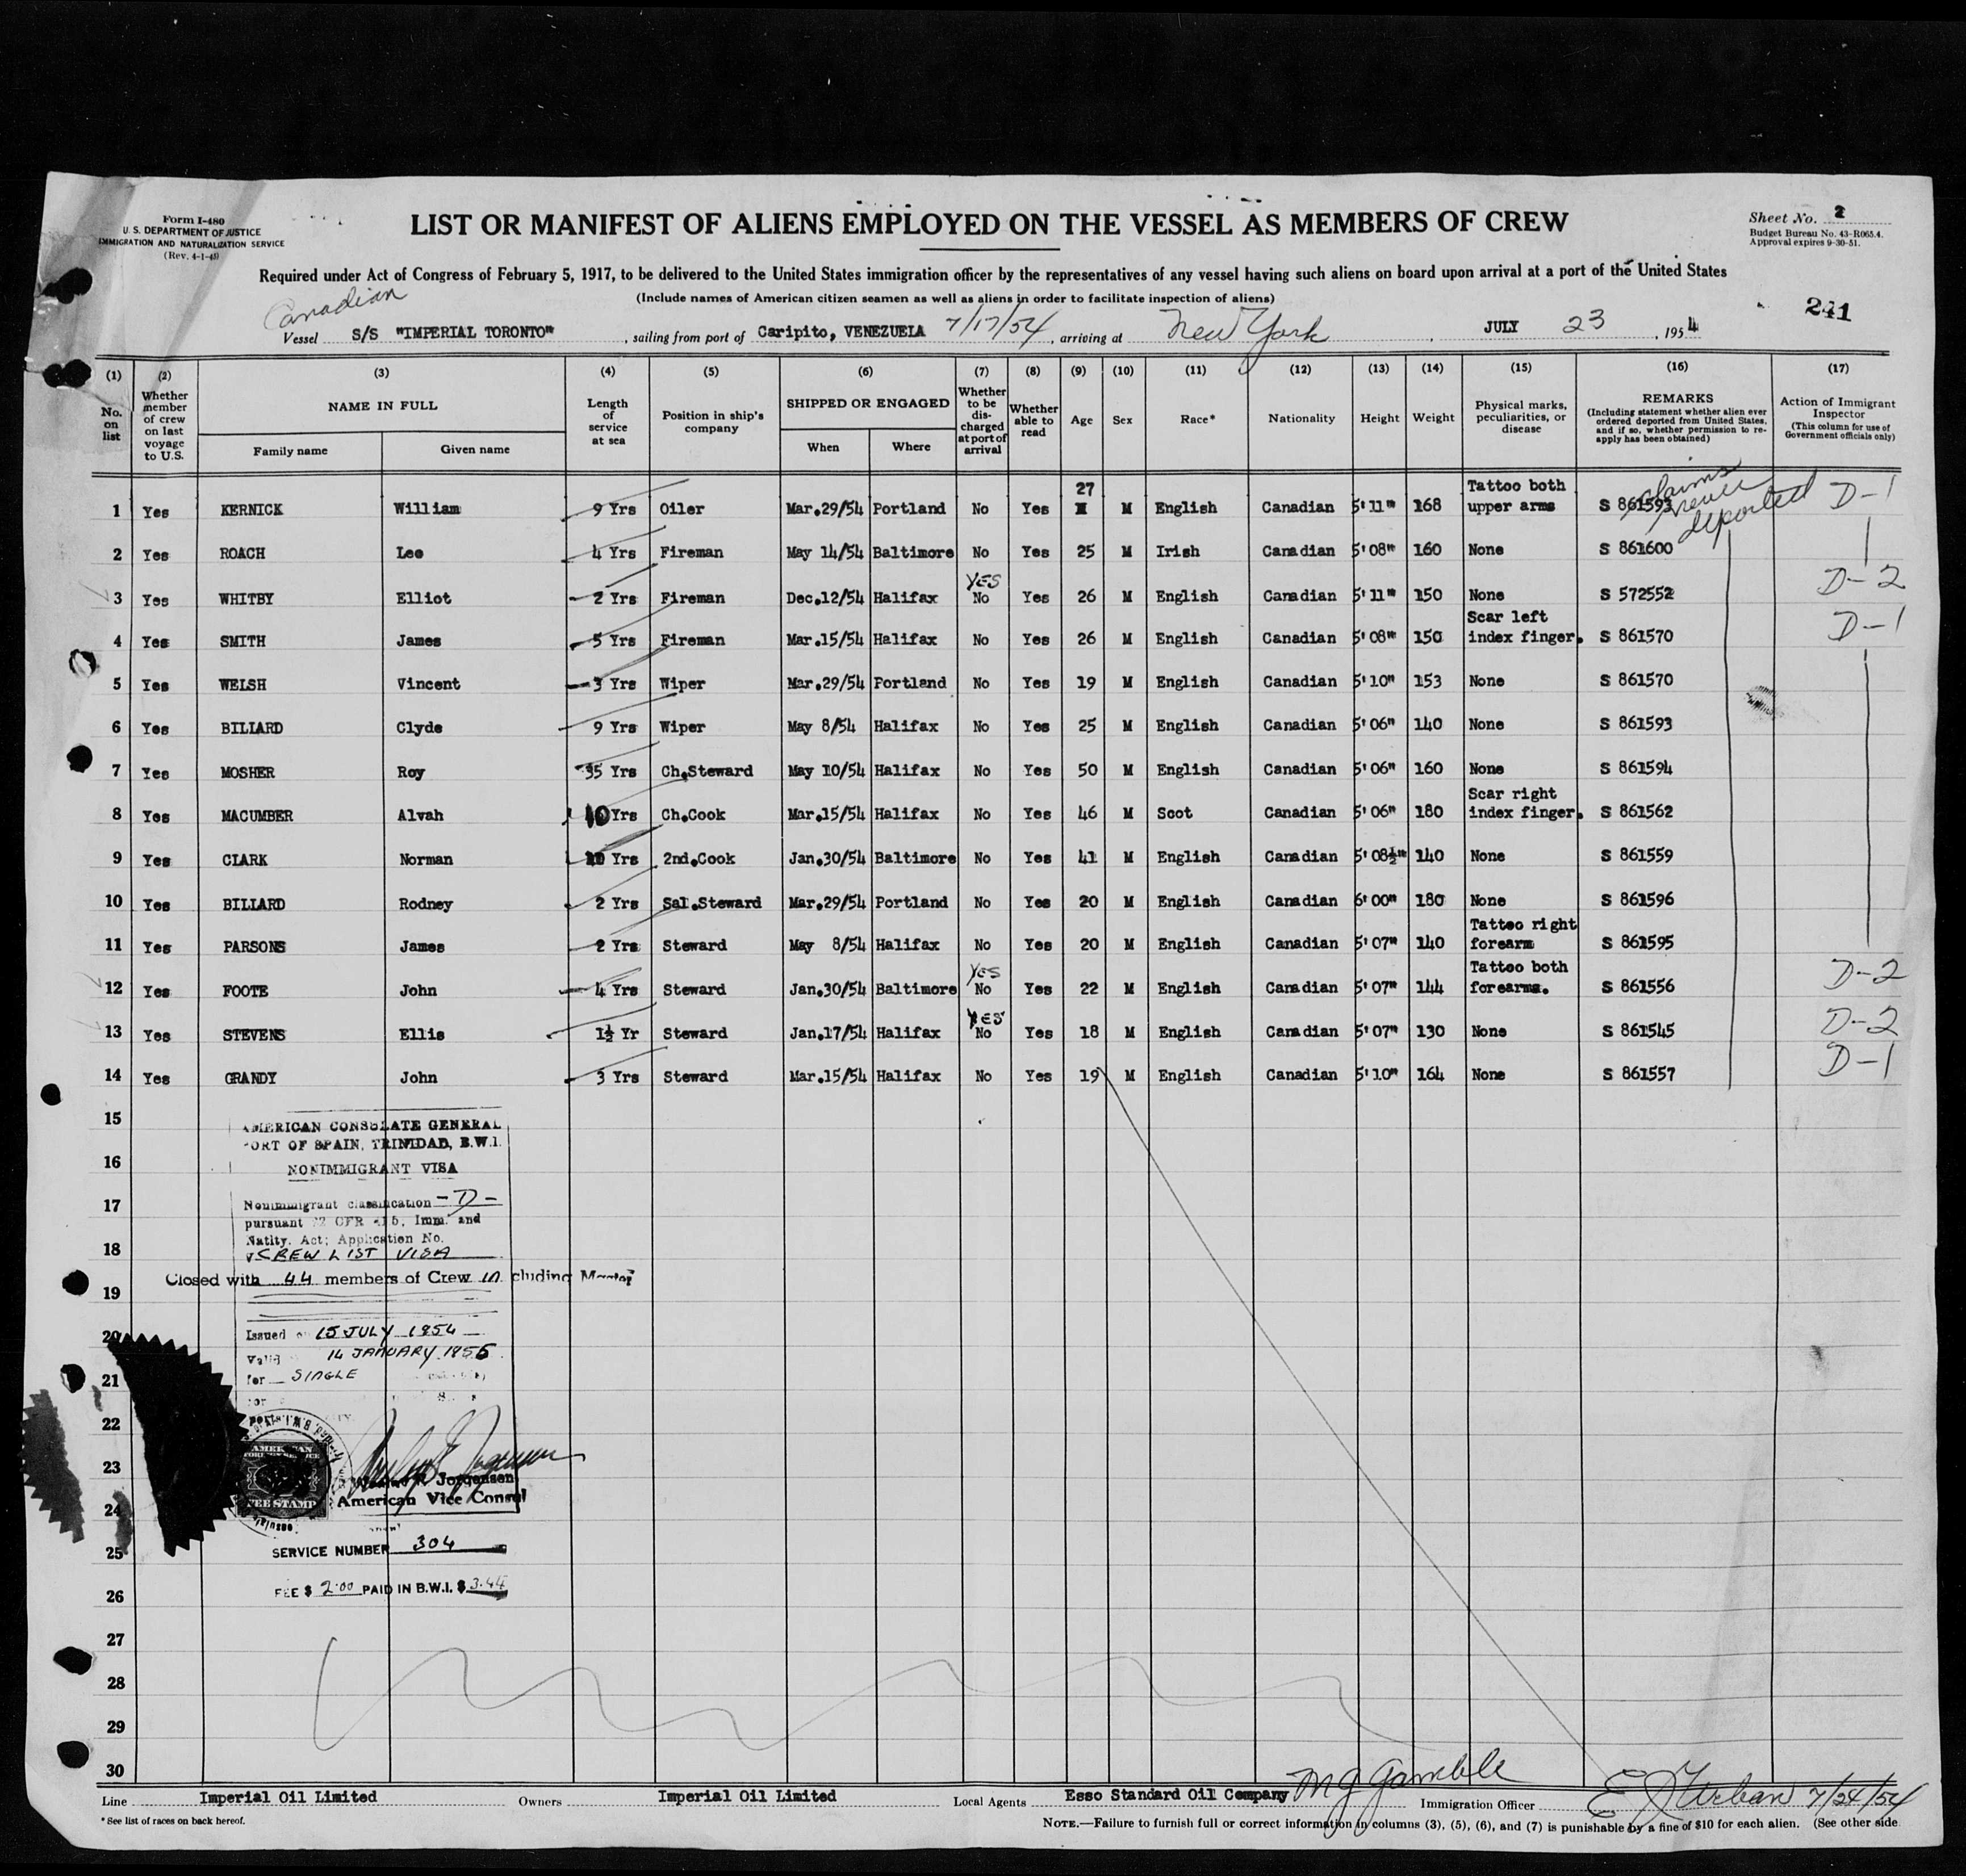 Form I-480
U. S. DEPARTMENT OF JUSTICE
IMMIGRATION AND NATURALIZATION SERVICE
(Rev. 4-1-45)
LIST OR MANIFEST OF ALIENS EMPLOYED ON THE VESSEL AS MEMBERS OF CREW
Sheet No. 2
Budget Bureau No. 43-R065.4.
Approval expires 9-30-51.
Required under Act of Congress of February 5, 1917, to be delivered to the United States immigration officer by the representatives of any vessel having such aliens on board upon arrival at a port of the United States
(Include names of American citizen seamen as well as aliens in order to facilitate inspection of aliens)
Canadian
241
Vessel S/S "IMPERIAL TORONTO", sailing from port of Caripito, VENEZUELA 7/17/54, arriving at New York, JULY 23, 1954
(1) No. on list
(2) Whether member of crew on last voyage to U.S.
(3) NAME IN FULL
Family name Given name
(4) Length of service at sea
(5) Position in ship's company
(6) SHIPPED OR ENGAGED
When Where
(7) Whether to be discharged at port of arrival
(8) Whether able to read
(9) Age
(10) Sex
(11) Race*
(12) Nationality
(13) Height
(14) Weight
(15) Physical marks, peculiarities, or disease
(16) REMARKS
(Including statement whether alien ever ordered deported from United States, and if so, whether permission to re-apply has been obtained)
(17) Action of Immigrant Inspector
(This column for use of Government officials only)
claims never deported
1 Yes KERNICK William 9 Yrs Oiler Mar.29/54 Portland No Yes 27 M English Canadian 5'11" 168 Tattoo both upper arms S 861593 D-1
2 Yes ROACH Lee 4 Yrs Fireman May 14/54 Baltimore No Yes 25 M Irish Canadian 5'08" 160 None S 861600
3 Yes WHITBY Elliot 2 Yrs Fireman Dec.12/54 Halifax YES No Yes 26 M English Canadian 5'11" 150 None S 572552 D-2
4 Yes SMITH James 5 Yrs Fireman Mar.15/54 Halifax No Yes 26 M English Canadian 5'08" 150 Scar left index finger. S 861570 D-1
5 Yes WELSH Vincent 3 Yrs Wiper Mar.29/54 Portland No Yes 19 M English Canadian 5'10" 153 None S 861570
6 Yes BILLARD Clyde 9 Yrs Wiper May 8/54 Halifax No Yes 25 M English Canadian 5'06" 140 None S 861593
7 Yes MOSHER Roy 35 Yrs Ch.Steward May 10/54 Halifax No Yes 50 M English Canadian 5'06" 160 None S 861594
8 Yes MACUMBER Alvah 10 Yrs Ch.Cook Mar.15/54 Halifax No Yes 46 M Scot Canadian 5'06" 180 Scar right index finger. S 861562
9 Yes CLARK Norman Yrs 2nd.Cook Jan.30/54 Baltimore No Yes 41 M English Canadian 5'08½" 140 None S 861559
10 Yes BILLARD Rodney 2 Yrs Sal.Steward Mar.29/54 Portland No Yes 20 M English Canadian 6'00" 180 None S 861596
11 Yes PARSONS James 2 Yrs Steward May 8/54 Halifax No Yes 20 M English Canadian 5'07" 140 Tattoo right forearm S 861595
12 Yes FOOTE John 4 Yrs Steward Jan.30/54 Baltimore YES No Yes 22 M English Canadian 5'07" 144 Tattoo both forearms. S 861556 D-2
13 Yes STEVENS Ellis 1½ Yr Steward Jan.17/54 Halifax YES No Yes 18 M English Canadian 5'07" 130 None S 861545 D-2
14 Yes GRANDY John 3 Yrs Steward Mar.15/54 Halifax No Yes 19 M English Canadian 5'10" 164 None S 861557 D-1
15
16
17
18
19
20
21
22
23
24
25
26
27
28
29
30
AMERICAN CONSULATE GENERAL
PORT OF SPAIN, TRINIDAD, B.W.I.
NONIMMIGRANT VISA
Nonimmigrant classification -D-
pursuant 22 CFR Imm. and
Natlty. Act; Application No.
CREW LIST VISA
Closed with 44 members of Crew including Master
Issued 15 JULY 1954
Valid 14 JANUARY 1955
for SINGLE
AMERICAN
FOREIGN SERVICE
FEE STAMP
Jorgensen
American Vice Consul
SERVICE NUMBER 304
FEE $ 2.00 PAID IN B.W.I. $ 3.44
Line Imperial Oil Limited Owners Imperial Oil Limited Local Agents Esso Standard Oil Company M J Gamble Immigration Officer E J Urban 7/24/54
* See list of races on back hereof.
NOTE.—Failure to furnish full or correct information in columns (3), (5), (6), and (7) is punishable by a fine of $10 for each alien. (See other side